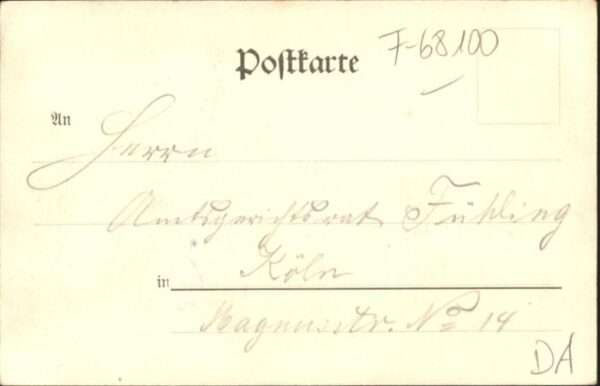 F-68100
Postkarte
An Herrn
Amtsgerichtsrat Fühling
in Köln
No 14
DA